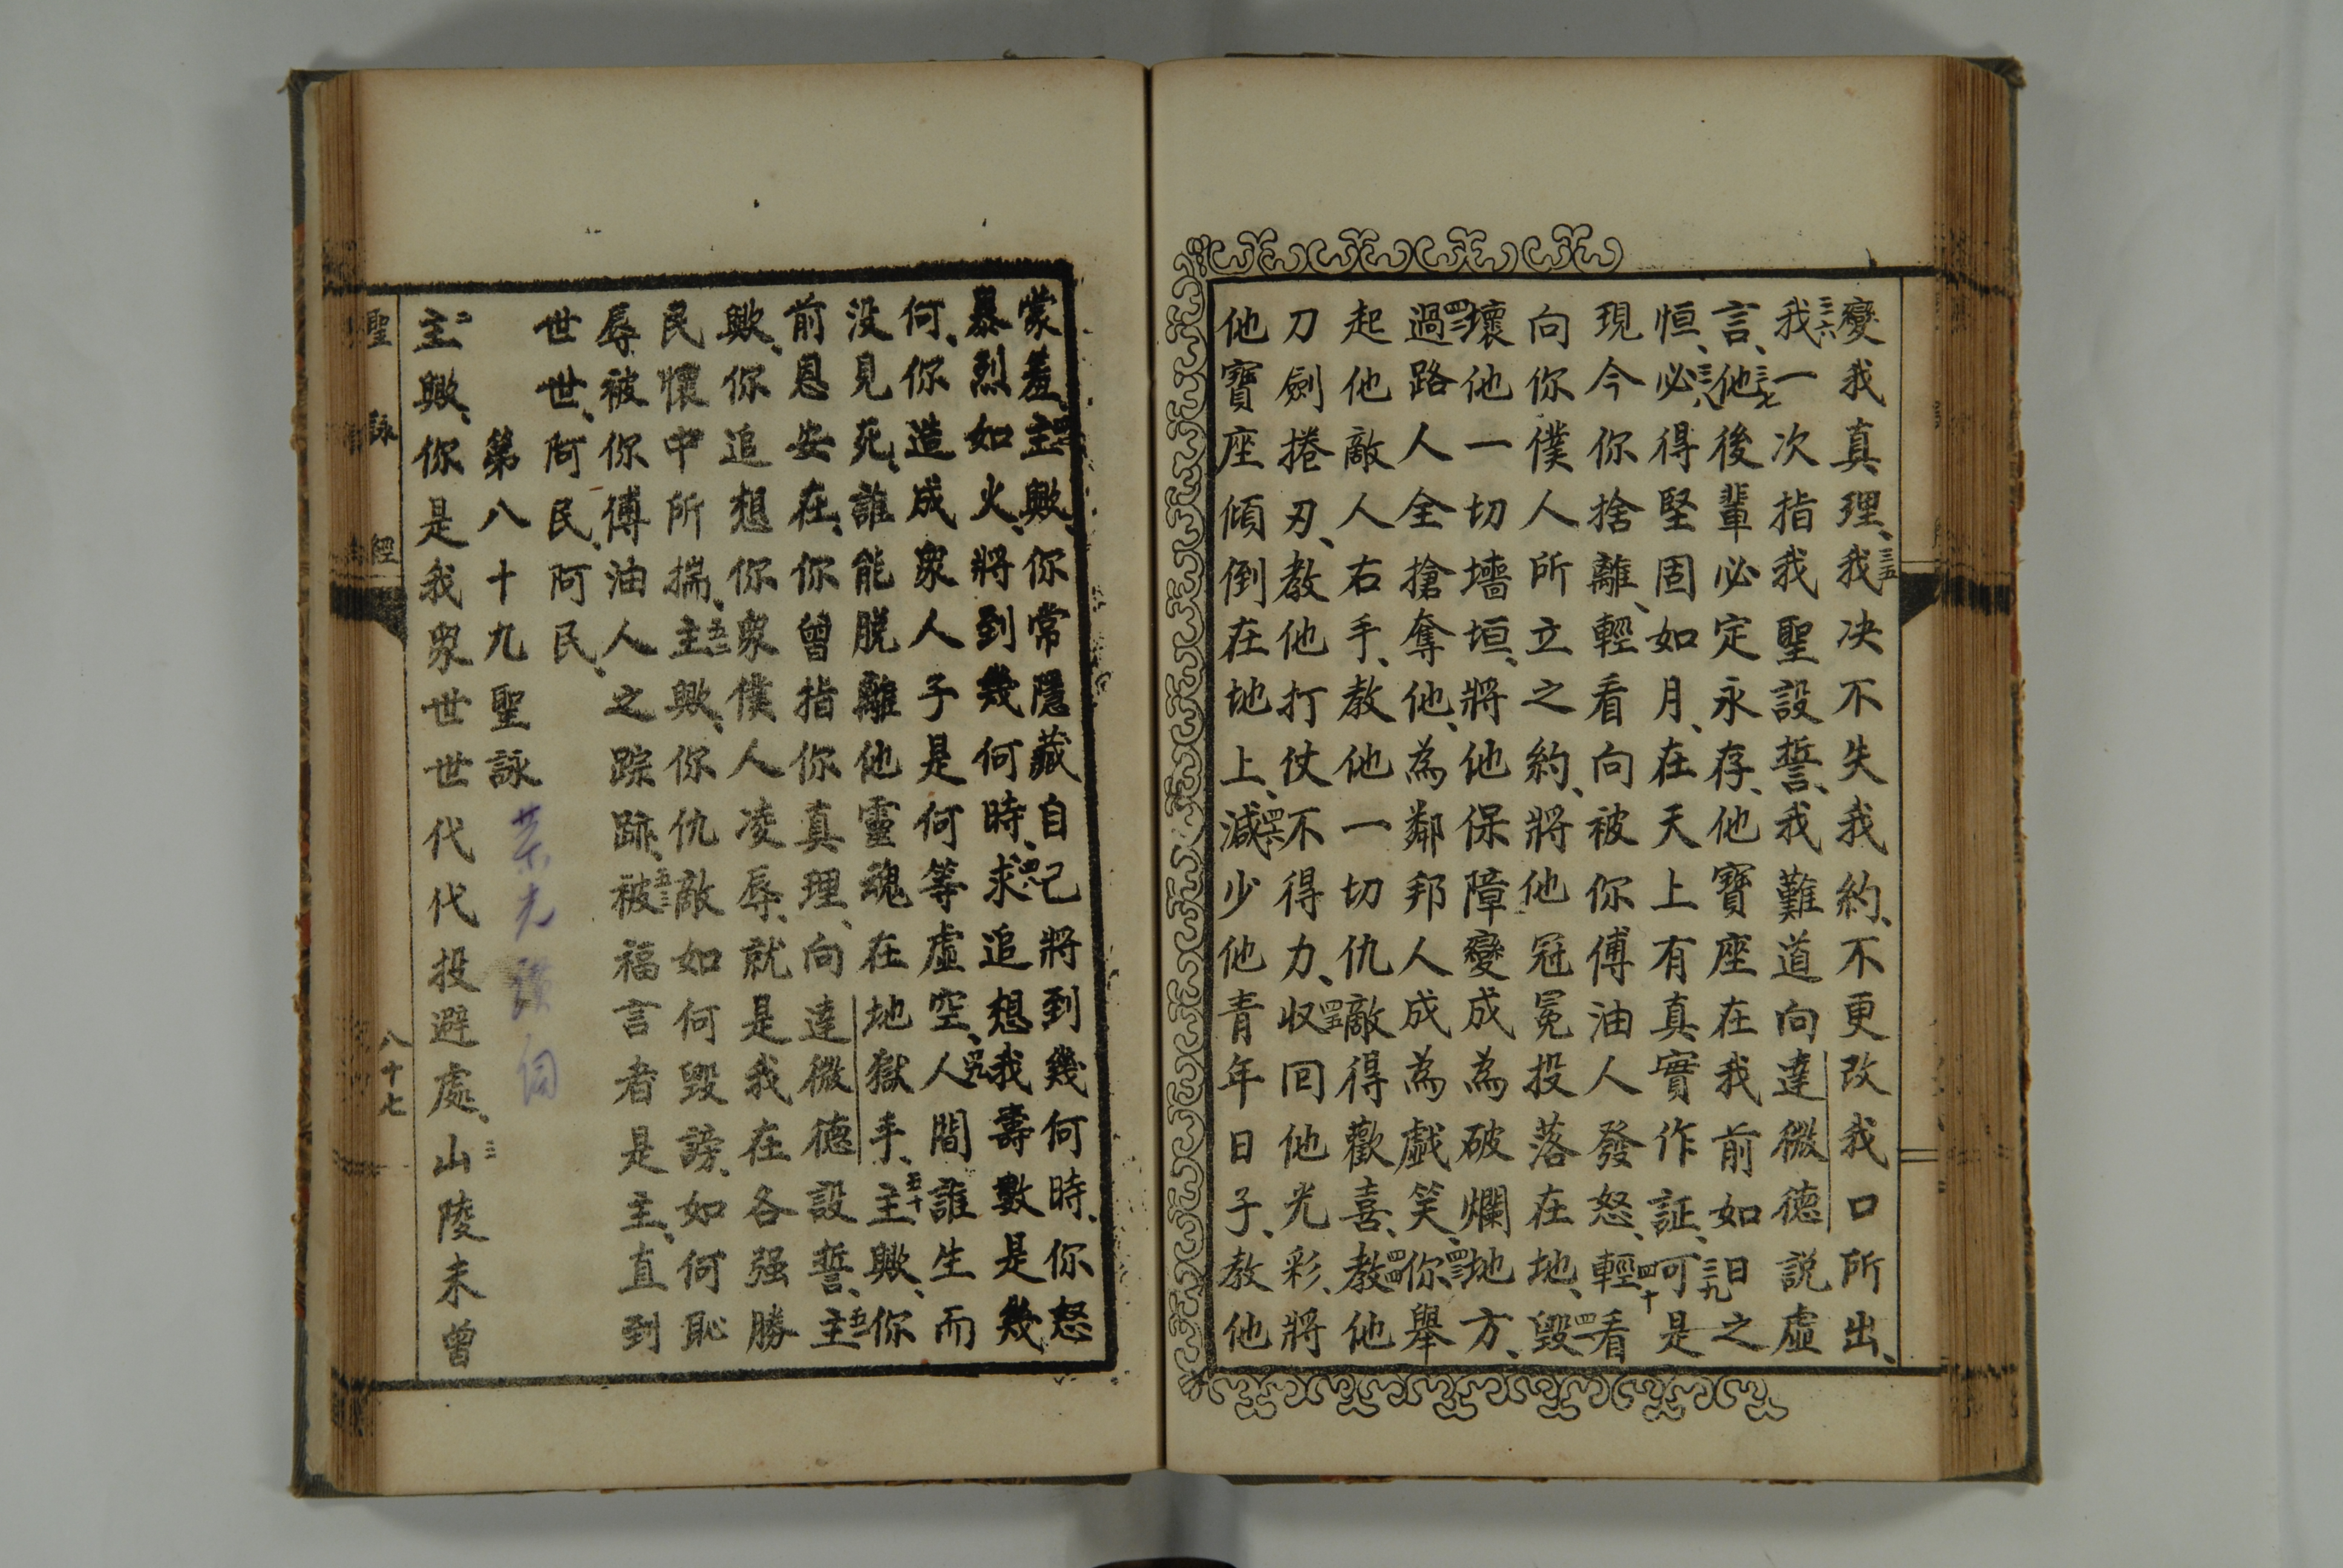 變我真理、三五我决不失我約、不更改我口所出、
三六我一次指我聖設誓、我難道向達微德説虛
言、三七他後輩必定永存、他寶座在我前如日之
恒、三八必得堅固如月、在天上有真實作証、三九可是
現今你捨離、輕看向被你傅油人發怒、四十輕看
向你僕人所立之約、將他冠冕投落在地、四一毀
壞他一切墻垣、將他保障變成為破爛地方、
四二過路人全搶奪他、為鄰邦人成為戲笑、四三你舉
起他敵人右手、教他一切仇敵得歡喜、四四教他
刀劍捲刃、教他打仗不得力、四五収回他光彩、將
他寶座傾倒在地上、四六減少他青年日子、教他
蒙羞、四七主歟、你常隱藏自己將到幾何時、你怒
暴烈如火、將到幾何時、四八求追想我壽數是幾
何、你造成衆人子是何等虛空、四九人間誰生而
没見死、誰能脱離他靈魂在地獄手、五十主歟、你
前恩安在、你曾指你真理、向達微德設誓、五一主
歟、你追想你衆僕人凌辱、就是我在各强勝
民懷中所揣、五二主歟、你仇敵如何毀謗、如何恥
辱被你傅油人之踪跡、五三被福言者是主、直到
世世、阿民、阿民、
第八十九聖詠
二主歟、你是我衆世世代代投避處、三山陵未曾
聖詠經
八十七